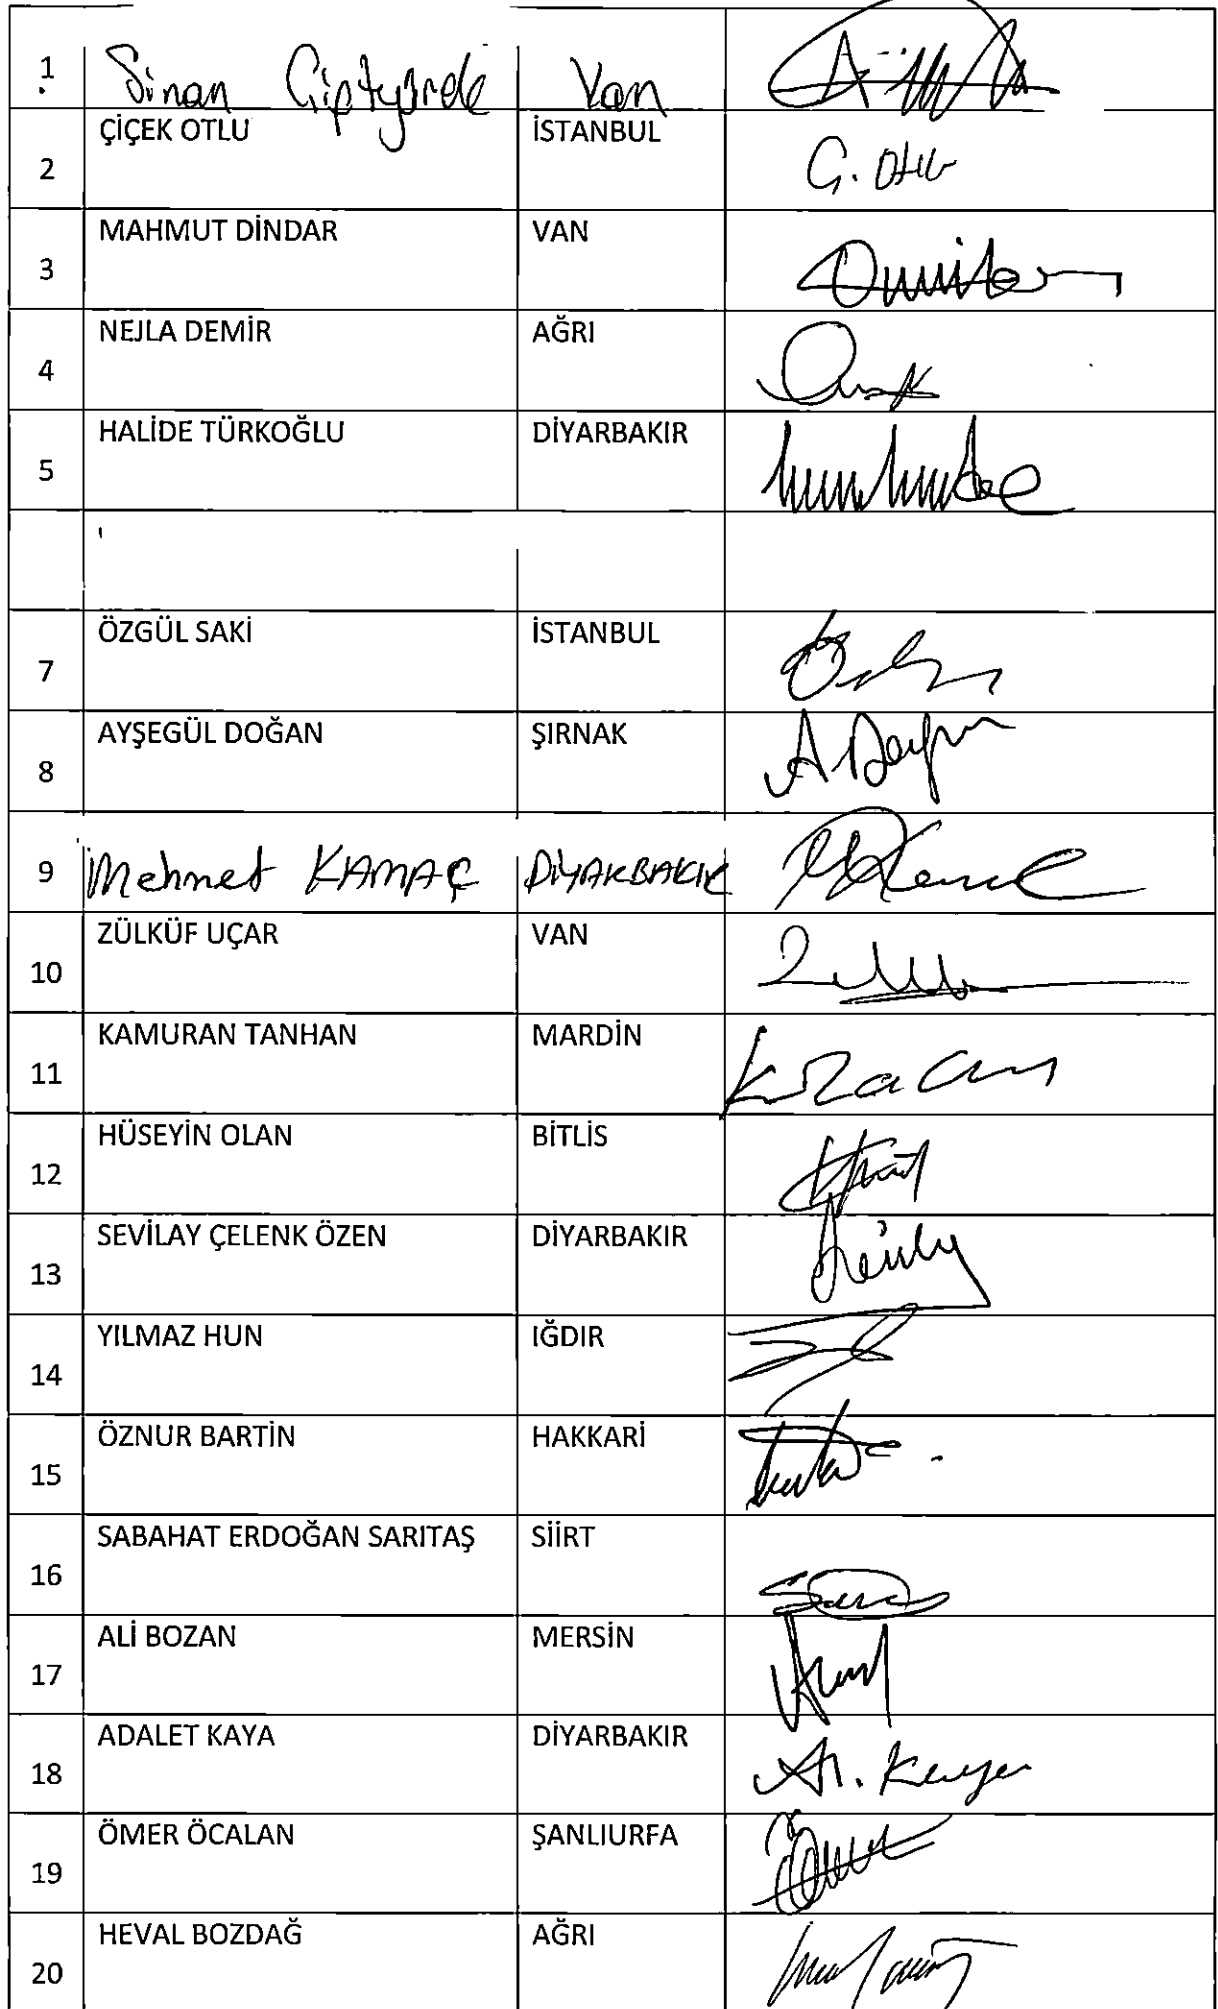 1 Sinan Çiftyürek Van
ÇİÇEK OTLU İSTANBUL
2 Ç. Otlu
MAHMUT DİNDAR VAN
3
NEJLA DEMİR AĞRI
4
HALİDE TÜRKOĞLU DİYARBAKIR
5
ÖZGÜL SAKİ İSTANBUL
7
AYŞEGÜL DOĞAN ŞIRNAK
8
9 Mehmet KAMAÇ DİYARBAKIR
ZÜLKÜF UÇAR VAN
10
KAMURAN TANHAN MARDİN
11
HÜSEYİN OLAN BİTLİS
12
SEVİLAY ÇELENK ÖZEN DİYARBAKIR
13
YILMAZ HUN IĞDIR
14
ÖZNUR BARTİN HAKKARİ
15
SABAHAT ERDOĞAN SARITAŞ SİİRT
16
ALİ BOZAN MERSİN
17
ADALET KAYA DİYARBAKIR
18
ÖMER ÖCALAN ŞANLIURFA
19
HEVAL BOZDAĞ AĞRI
20